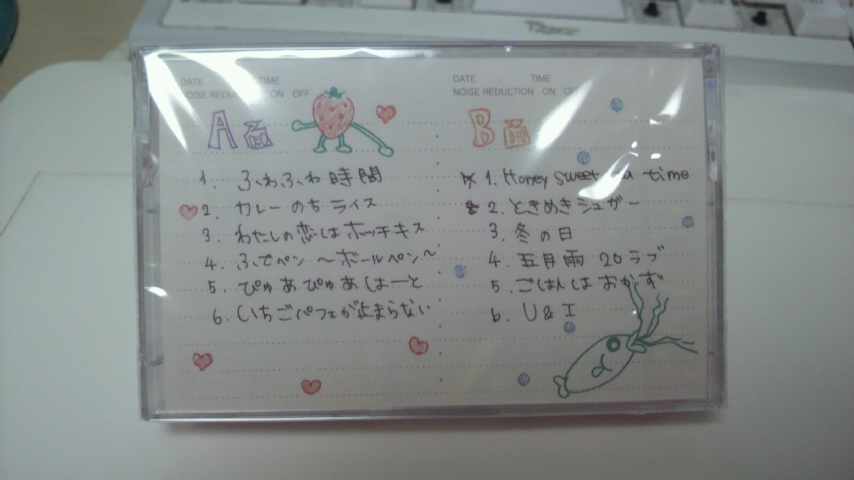 DATE TIME
NOISE REDUCTION ON OFF
A面
1. ふわふわ時間
2. カレーのちライス
3. わたしの恋はホッチキス
4. ふでペン 〜ボールペン〜
5. ぴゅあぴゅあはーと
6. いちごパフェが止まらない
DATE TIME
NOISE REDUCTION ON OFF
B面
1. Honey sweet tea time
2. ときめきシュガー
3. 冬の日
4. 五月雨 20 ラブ
5. ごはんはおかず
6. U & I